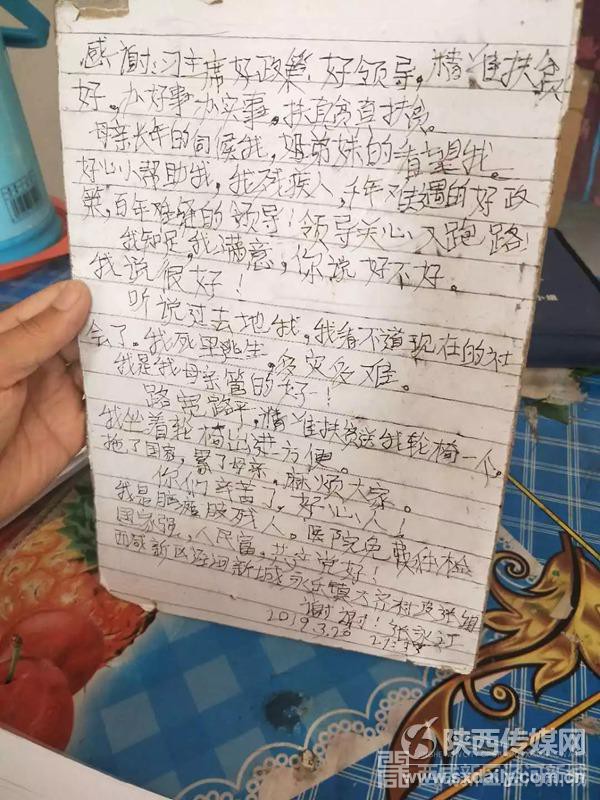 感谢：习主席好政策，好领导，精准扶贫
好，办好事办实事，扶真贫真扶贫。
母亲长年的伺候我，兄弟妹的看望我。
好心小帮助我，我残疾人，千年难遇的好政
策，百年难见的领导！领导关心入跑路！
我知足，我满意，你说好不好。
我说很好！
听说过去地我，我看不道现在的社
会了。我死里逃生，多灾多难。
我是我母亲管的好！
路宽路平，精准扶贫送我轮椅一个。
我坐着轮椅出进方便。
拖了国家，累了母亲，麻烦大家。
你们辛苦了，好心人！
我是脑瘫肢残人。医院免费体检
国家强，人民富，共产党好！
西咸新区泾河新城永乐镇大
谢谢！张
2019.3.20
陕西传媒网
www.sxdaily.com.cn